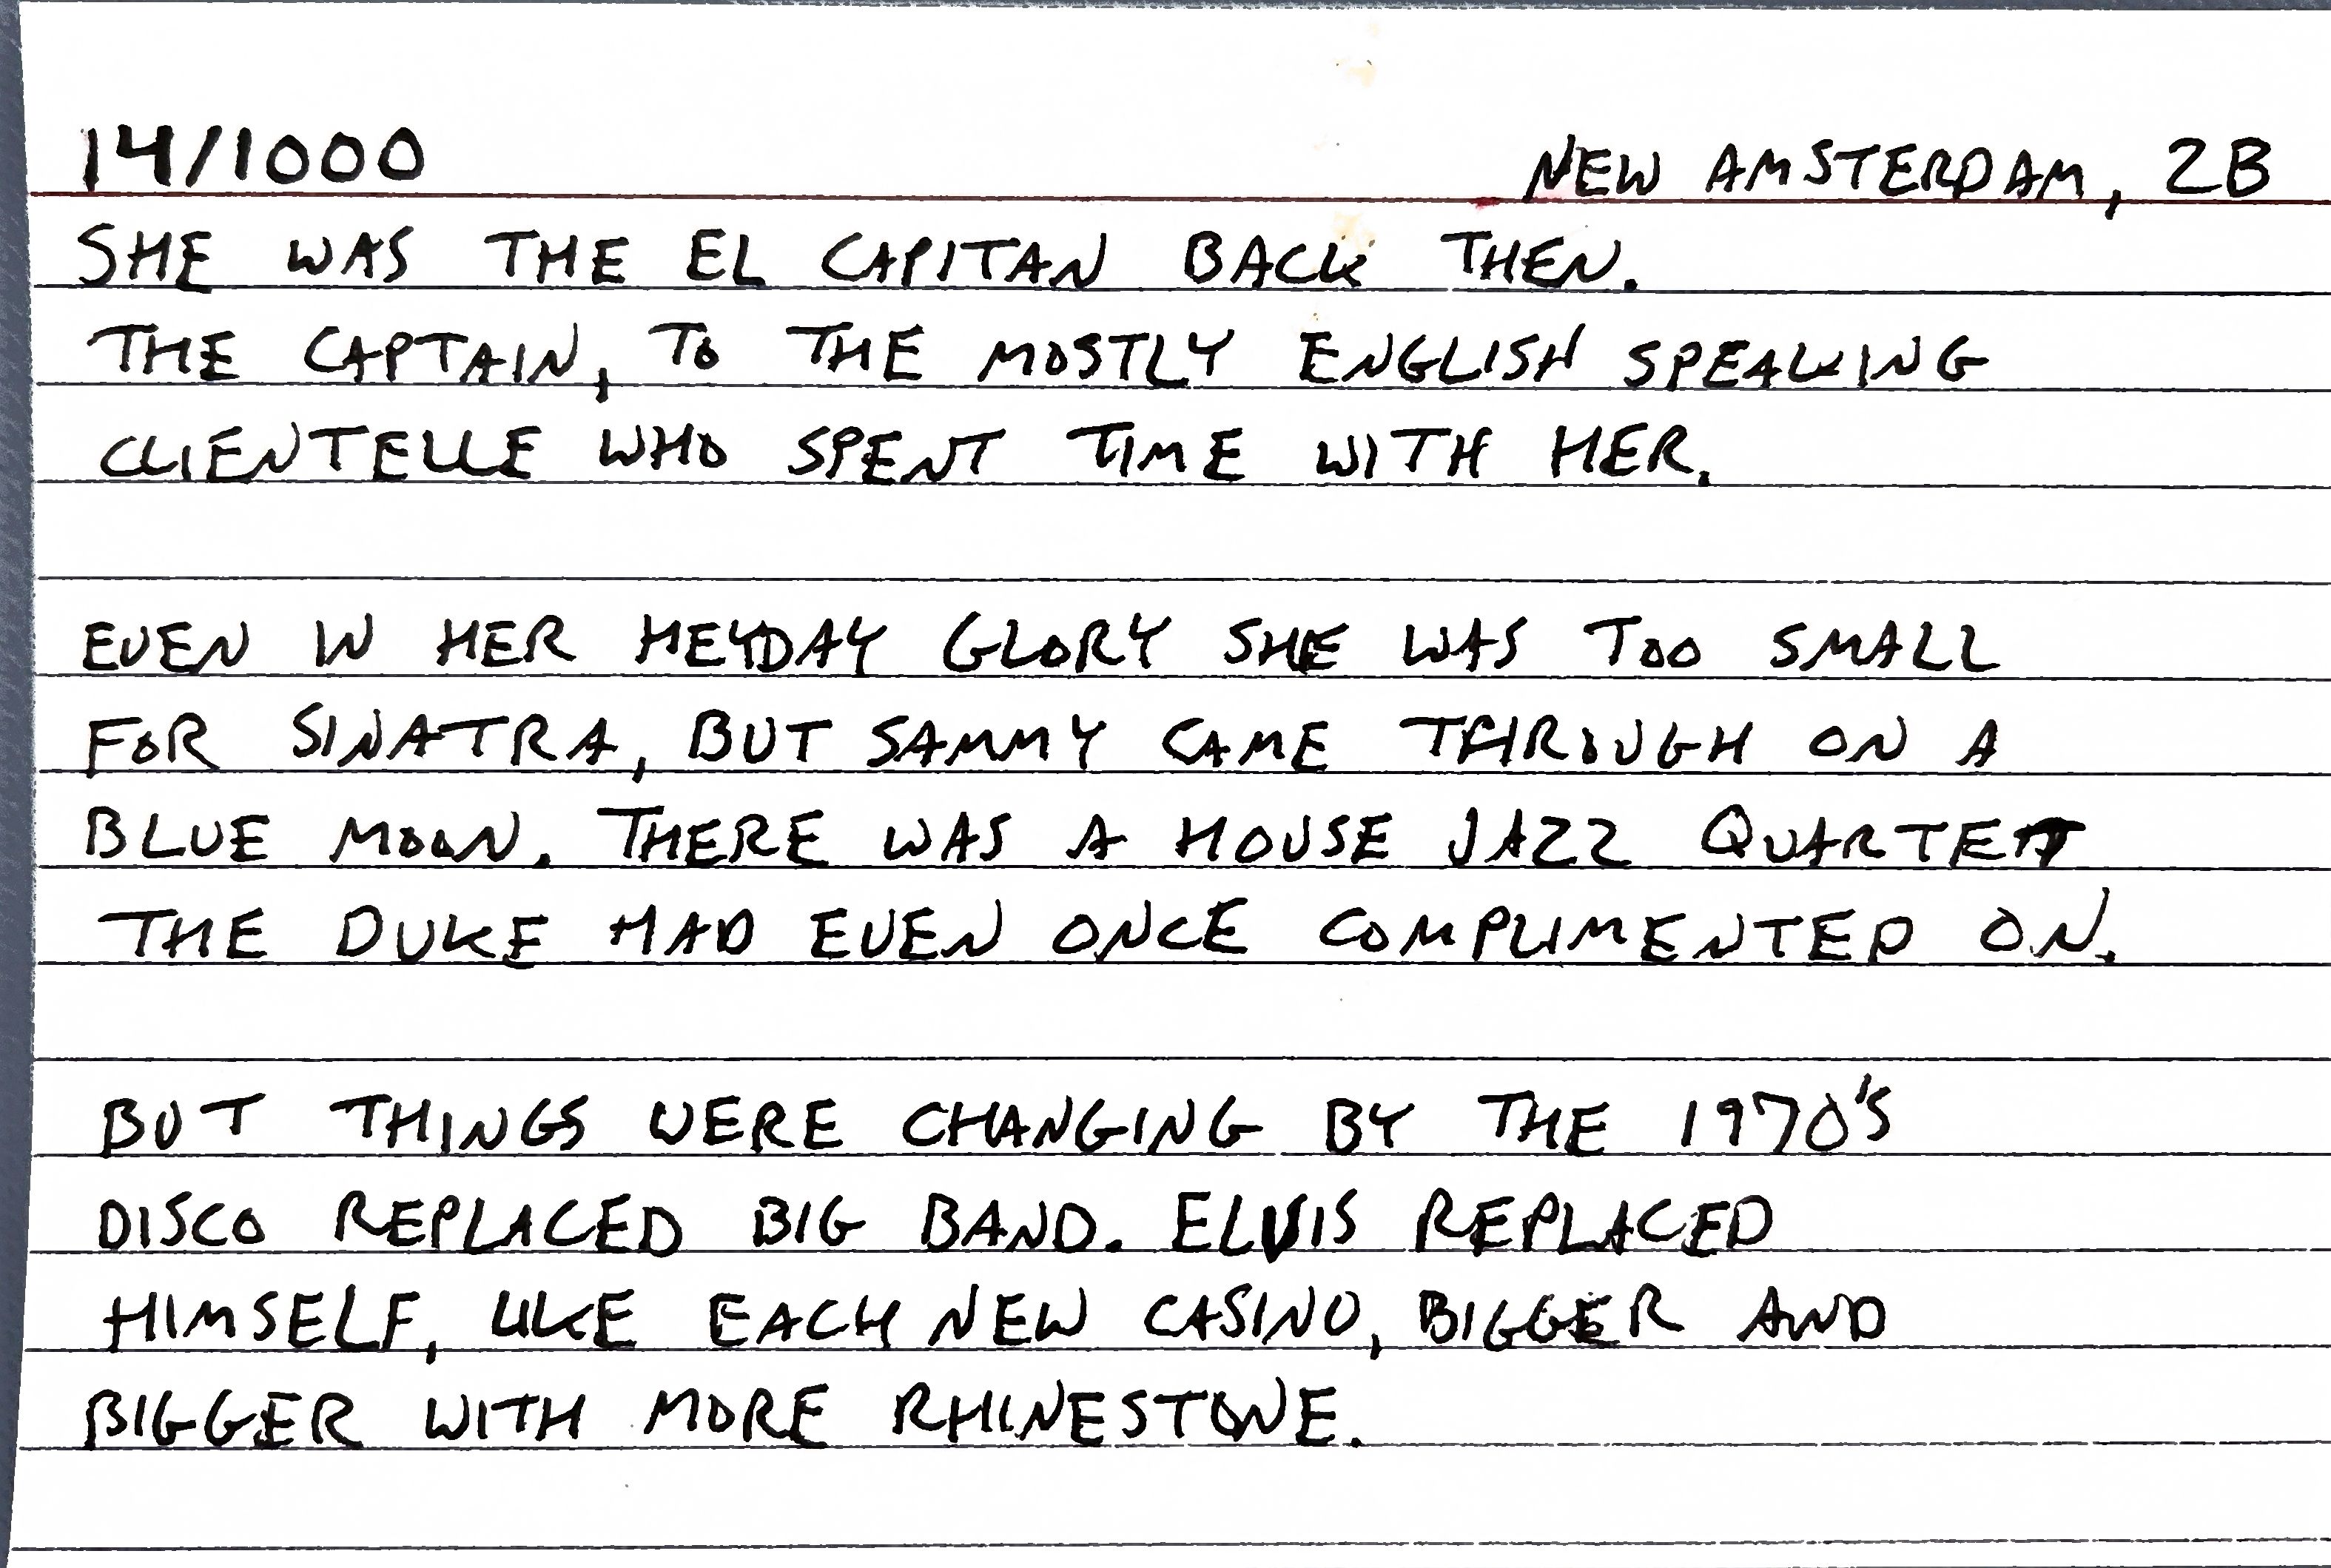 14/1000
NEW AMSTERDAM, 2B
SHE WAS THE EL CAPITAN BACK THEN.
THE CAPTAIN, TO THE MOSTLY ENGLISH SPEAKING
CLIENTELLE WHO SPENT TIME WITH HER.
EVEN IN HER HEYDAY GLORY SHE WAS TOO SMALL
FOR SINATRA, BUT SAMMY CAME THROUGH ON A
BLUE MOON. THERE WAS A HOUSE JAZZ QUARTET
THE DUKE HAD EVEN ONCE COMPLIMENTED ON.
BUT THINGS WERE CHANGING BY THE 1970'S
DISCO REPLACED BIG BAND. ELVIS REPLACED
HIMSELF, LIKE EACH NEW CASINO, BIGGER AND
BIGGER WITH MORE RHINESTONE.